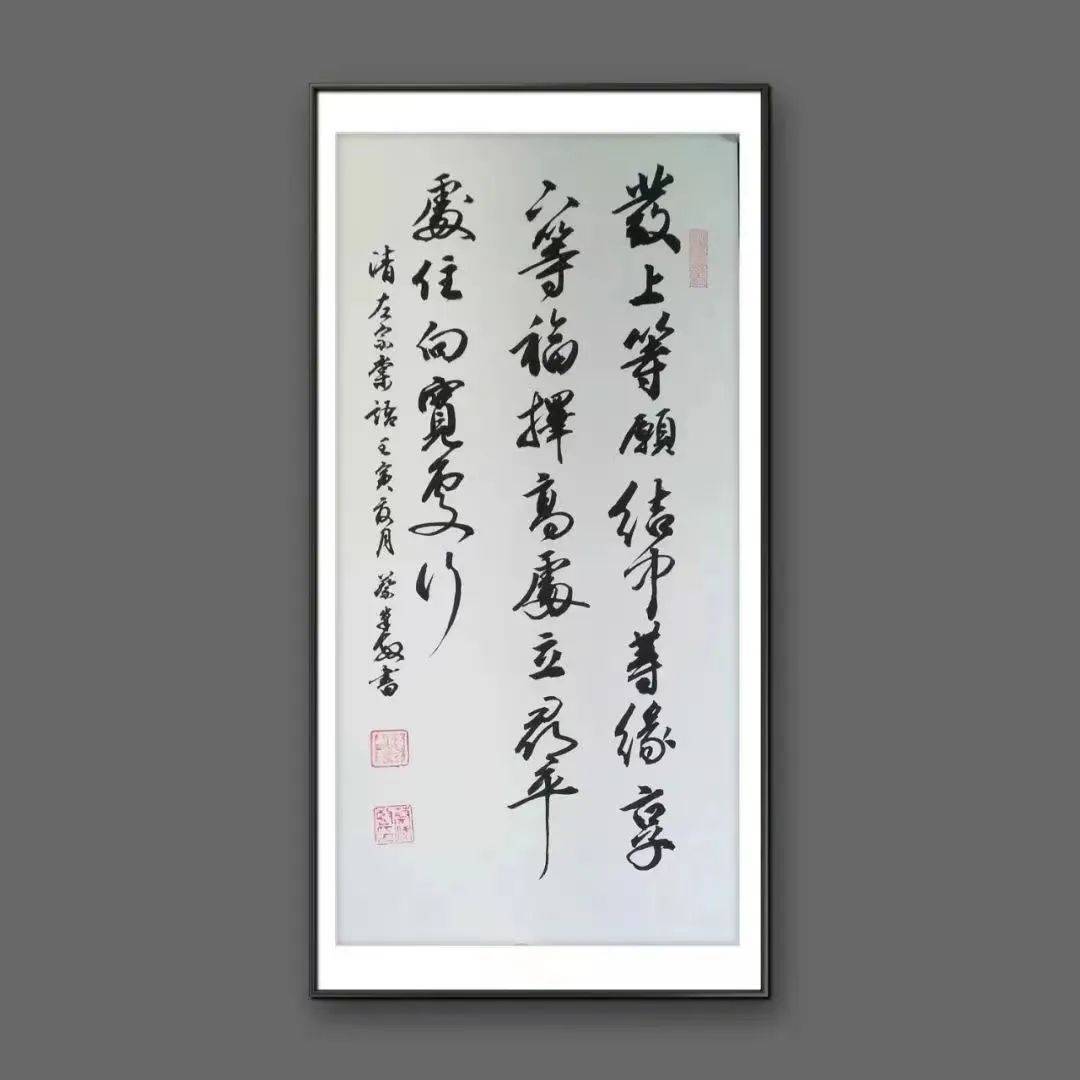 發上等願結中等緣享
下等福擇高處立尋平
處住向寬處行
清左宗棠語壬寅夏月蔡書